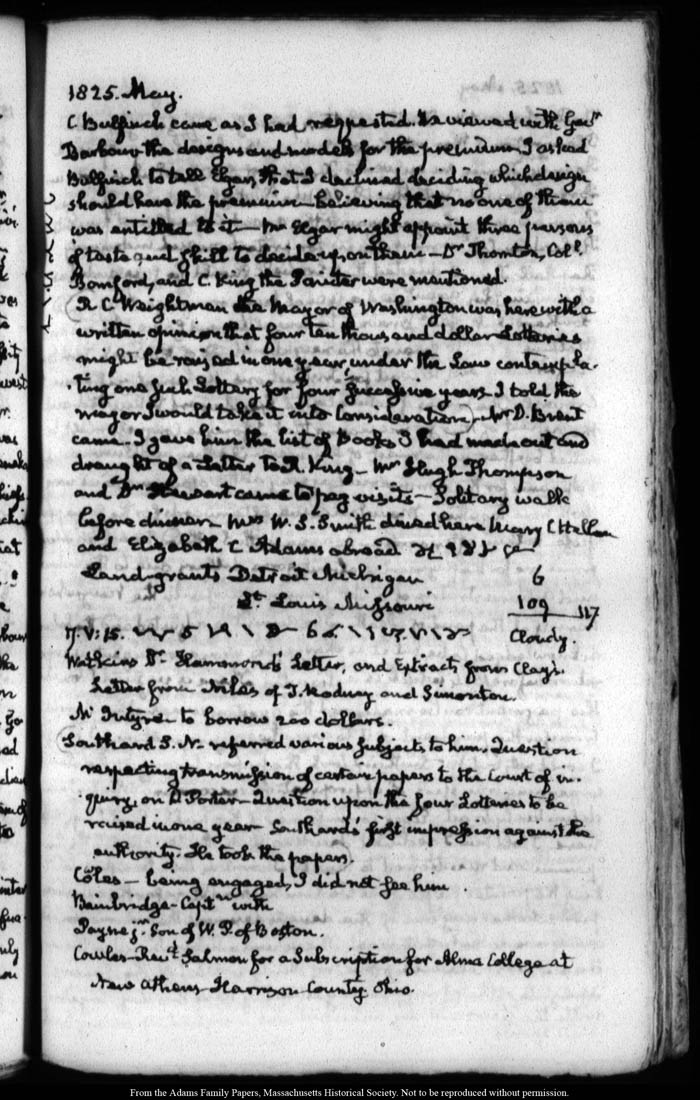 1825. May.
C Bulfinch came as I had requested. Reviewed with Govr.
Barbour the designs and models for the premium. I asked
Bulfinch to tell Elgar, that I declined deciding which design
should have the premium—believing that no one of them
was entitled to it—Mr Elgar might appoint three persons
of taste and skill to decide upon them—Dr Thornton, Coll.
Bomford, and C. King the Painter were mentioned.
R C Weightman the Mayor of Washington was here with a
written opinion that four ten thousand dollar Lotteries
might be raised in one year, under the Law contempla-
-ting one such Lottery for four successive years. I told the
mayor I would take it into Consideration. Mr D. Brent
came. I gave him the list of Books I had made out and
draught of a Letter to R. King—Mr Hugh Thompson
and Dr Stewart came to pay visits—Solitary walk
before dinner. Mrs W. S. Smith dined here Mary C Hellen
and Elizabeth C Adams abroad
Land-grants Detroit Michigan 6
St. Louis Missouri 109 117
17. V: 15. Cloudy.
Watkins Dr. Hammond's Letter, and Extracts from Clay's.
Letter from Niles of T. Rodney and Simonton.
McIntyre to borrow 200 dollars.
Southard S. N—referred various subjects to him. Question
respecting transmission of certain papers to the Court of in-
-quiry, on D Porter—Question upon the four Lotteries to be
raised in one year—Southard's first impression against the
authority. He took the papers.
Coles—being engaged, I did not see him.
Bainbridge—Captn. with
Payne jr. Son of W. P. of Boston.
Cowles—Revd. Salmon for a Subscription for Alma College at
New Athens—Harrison County. Ohio.
From the Adams Family Papers, Massachusetts Historical Society. Not to be reproduced without permission.